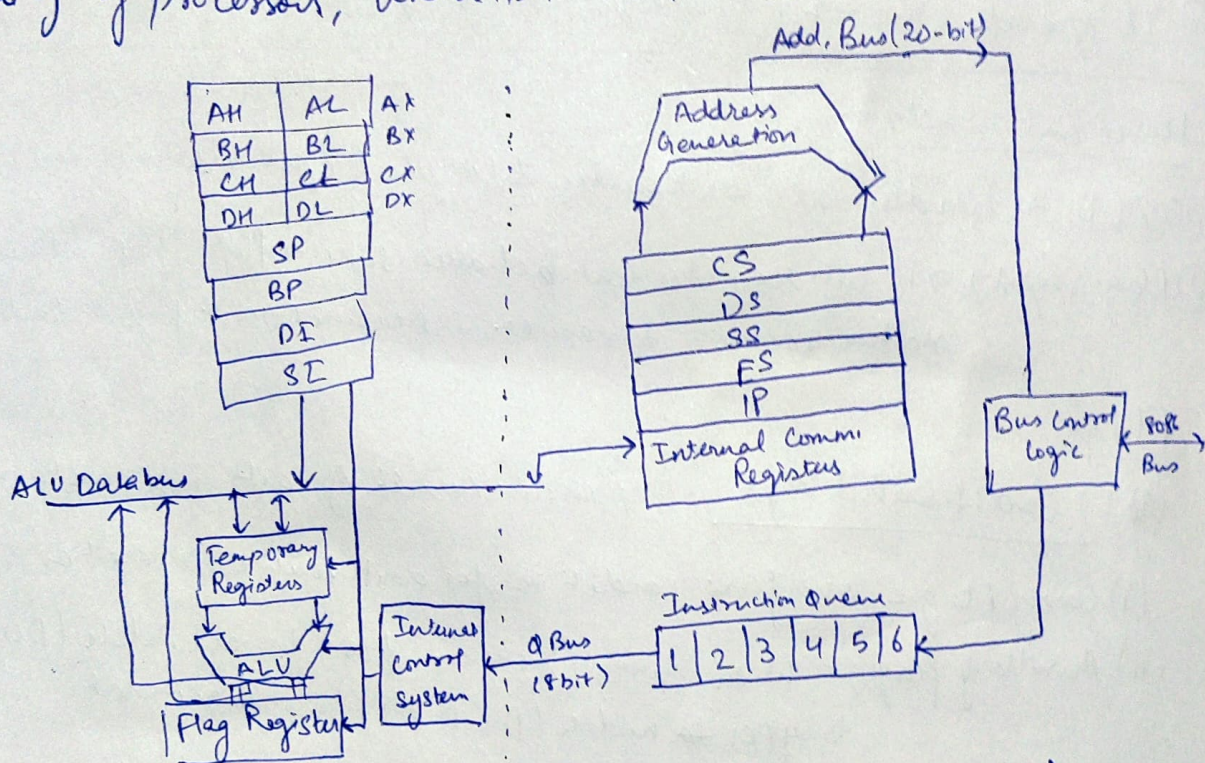 processors,
Add. Bus (20-bit)
AH AL AX
BH BL BX
CH CL CX
DH DL DX
SP
BP
DI
SI
Address
Generation
CS
DS
SS
ES
IP
Internal Commi
Registers
Bus Control
logic
8086
Bus
ALU Databus
Temporary
Registers
ALU
Flag Register
Internal
control
system
Q Bus
(8bit)
Instruction Queue
1 2 3 4 5 6